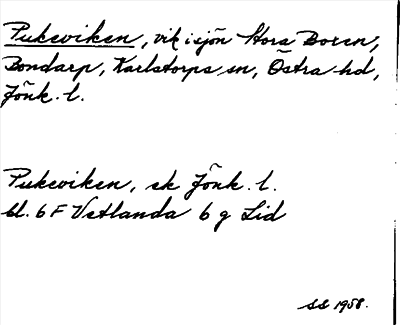 Pukeviken, vik i sjön Stora Boren,
Bondarp, Karlstorps sn, Östra hd,
Jönk. l.
Pukeviken, ek Jönk. l.
bl. 6 F Vetlanda 6 g Lid
SS 1958.